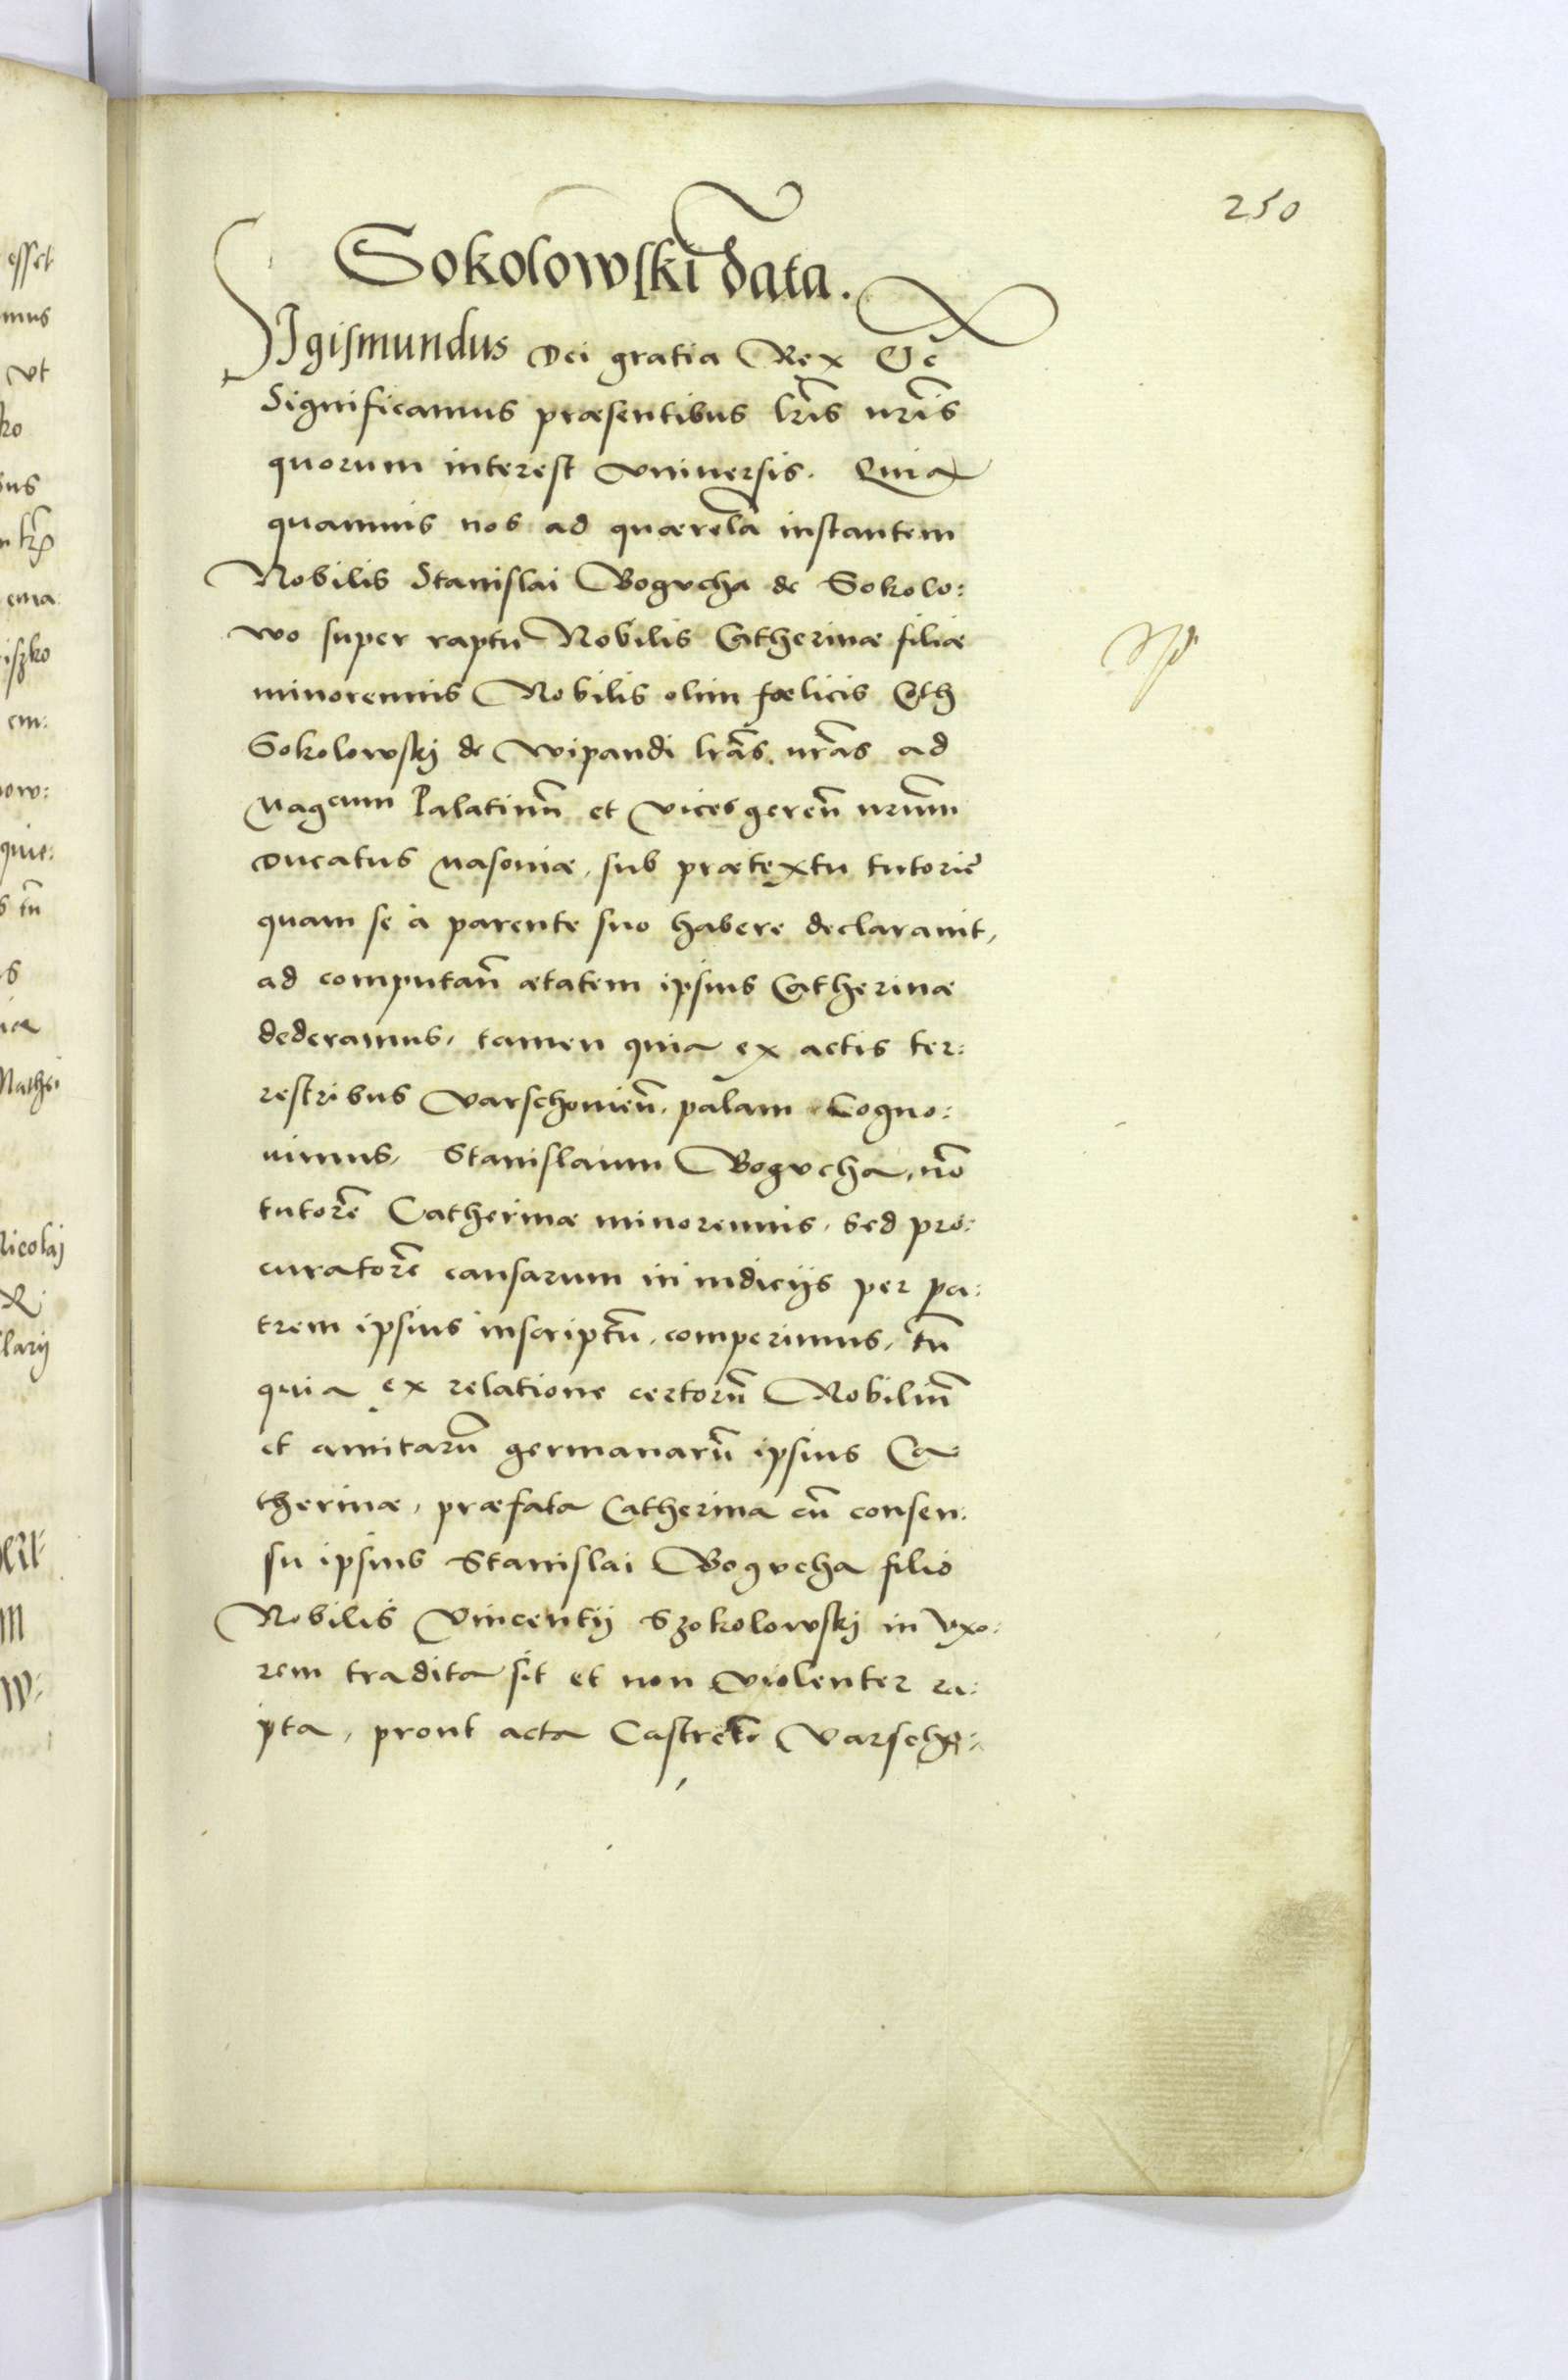 250
Sokolowski data.
SIgismundus Dei gratia Rex Etc̄
Significamus præsentibus lr̄is nr̄is
quorum interest vniuersis. Quia
quamuis nos ad quærelā instantem
Nobilis Stanislai Bogucha de Sokolo:
wo super raptu Nobilis Catherinæ filiæ
minorennis Nobilis olim fœlicis
Sokolowskij de Wipandi lr̄as nr̄as ad
Palatinū et vices gereñ nrūm
Ducatus Masouiæ, sub prætextu tutoriē
quam se à parente suo habere declarauit,
ad computañ ætatem ipsius Catherinæ
dederamus, tamen quia ex actis ter:
restribus Varschouieñ. palam Cogno:
uimus, Stanislaum Bogucha, nō
tutorē Catherinæ minorennis, sed pro:
curatorē causarum in iudicijs per pa:
trem ipsius inscriptū, comperimus, tū
quia ex relatione certorū Nobiliū
et amitarū germanarū ipsius Ca
therinæ, præfata Catherina cū consen:
su ipsius Stanislai Bogucha filio
Nobilis Vincentij Szokolowskij in Vxo:
rem tradita sit et non violenter ra:
pta, prout acta Varscho: